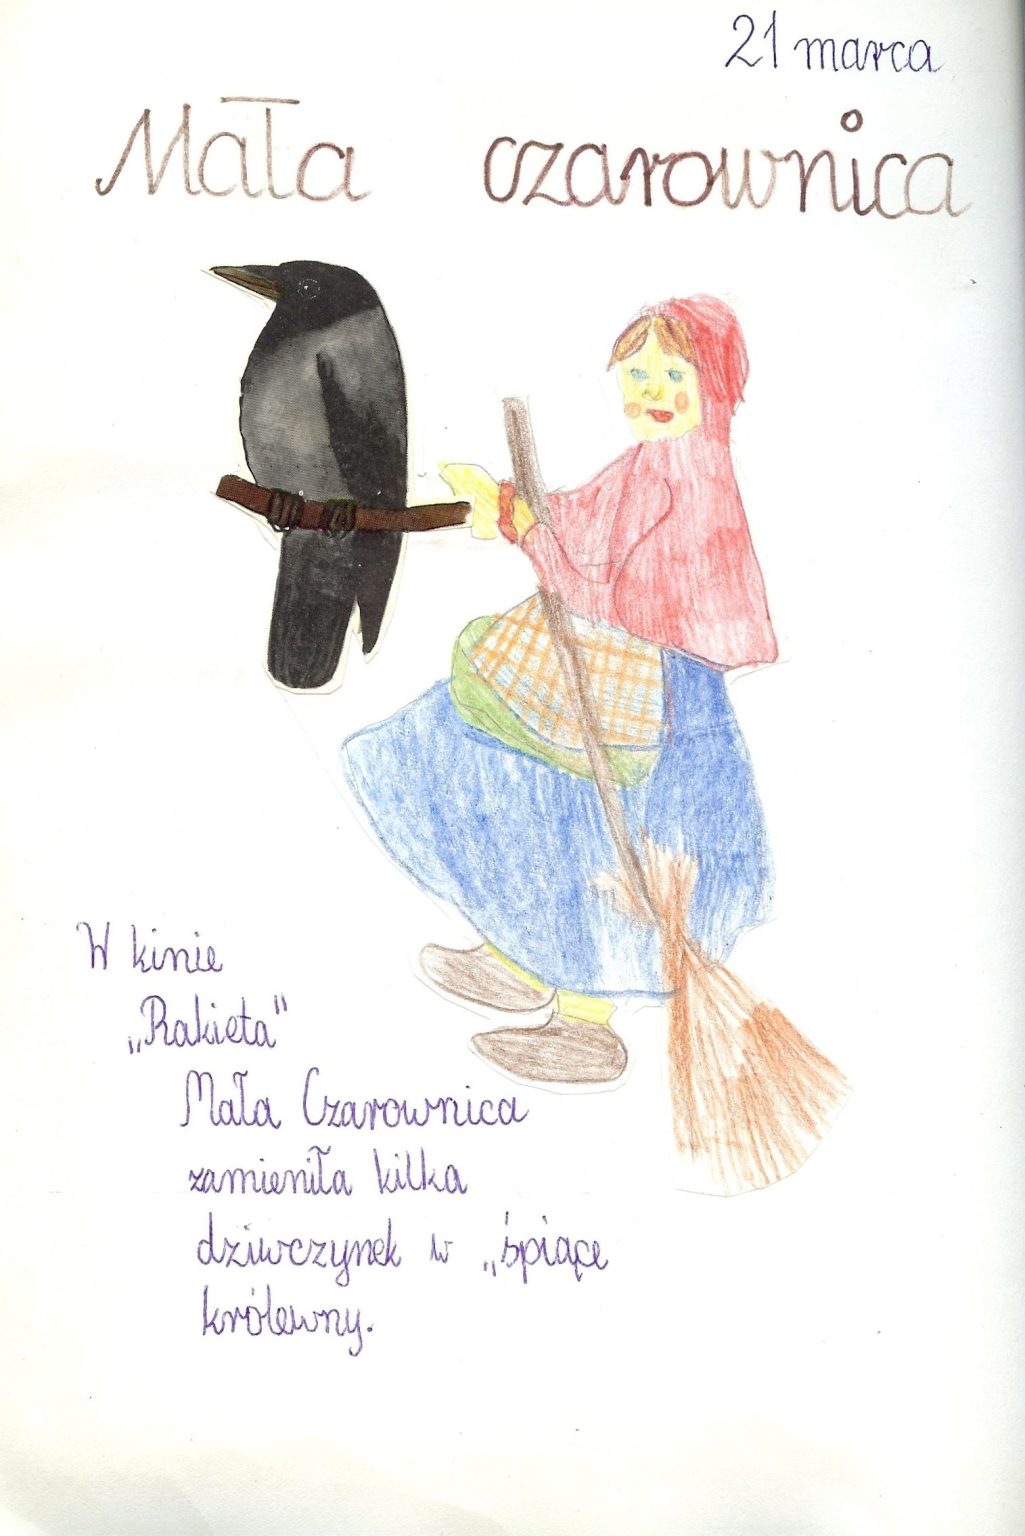 21 marca
Mała czarownica
W kinie
„Rakieta"
Mała Czarownica
zamieniła kilka
dziwczynek w „śpiące
królewny.